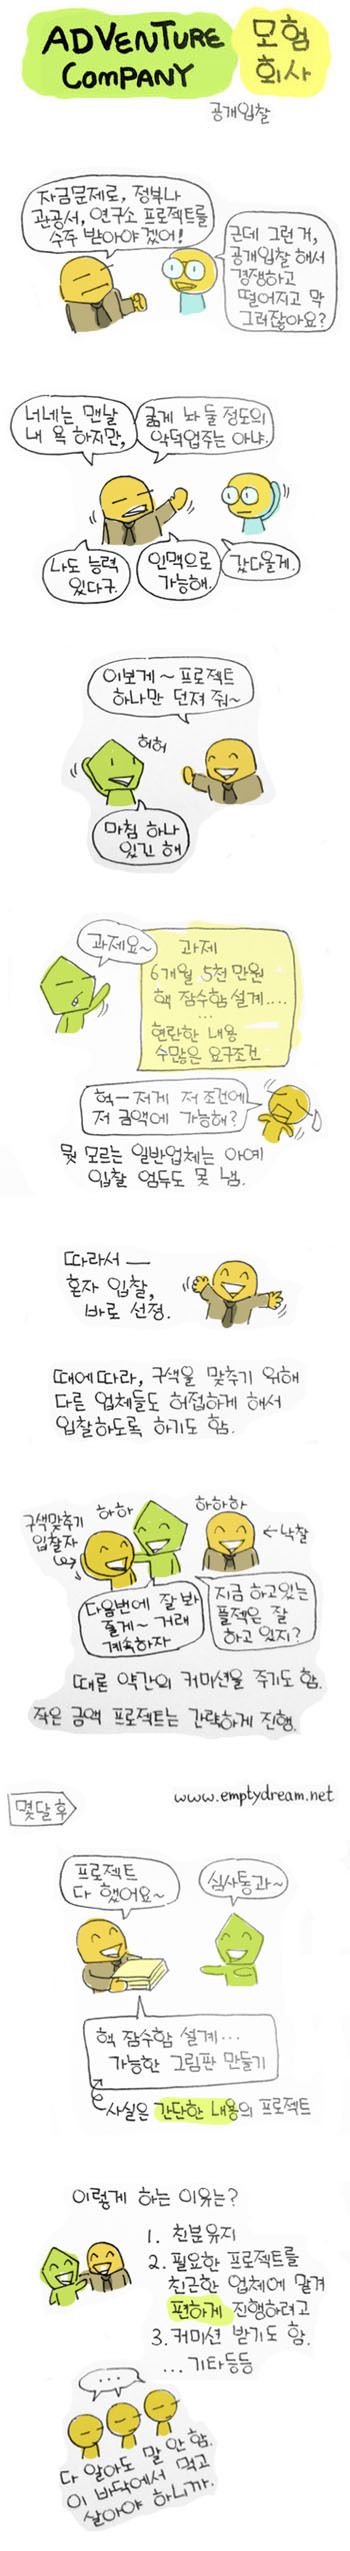 ADVENTURE
COMPANY
모험
회사
공개입찰
자금문제로, 정부나
관공서, 연구소 프로젝트를
수주 받아야 겠어!
근데 그런 거,
공개입찰 해서
경쟁하고
떨어지고 막
그러잖아요?
너네는 맨날
내 욕 하지만,
굶게 놔 둘 정도의
악덕업주는 아냐.
나도 능력
있다구.
인맥으로
가능해.
갔다올게.
이보게~ 프로젝트
하나만 던져 줘~
허허
마침 하나
있긴 해
과제요~
과제
6개월 5천만원
핵 잠수함 설계....
...
현란한 내용
수많은 요구조건
헉- 저게 저 조건에
저 금액에 가능해?
뭣 모르는 일반업체는 아예
입찰 엄두도 못 냄.
따라서 —
혼자 입찰,
바로 선정.
때에 따라, 구색을 맞추기 위해
다른 업체들도 허접하게 해서
입찰하도록 하기도 함.
구색맞추기
입찰자
하하
하하하
←낙찰
다음번에 잘 봐
줄게~ 거래
계속하자
지금 하고있는
플젝은 잘
하고 있지?
때론 약간의 커미션을 주기도 함.
작은 금액 프로젝트는 간략하게 진행.
www.emptydream.net
몇달 후
프로젝트
다 했어요~
심사통과~
핵 잠수함 설계...
가능한 그림판 만들기
사실은 간단한 내용의 프로젝트
이렇게 하는 이유는?
1. 친분유지
2. 필요한 프로젝트를
친근한 업체에 맡겨
편하게 진행하려고
3. 커미션 받기도 함.
... 기타등등
...
다 알아도 말 안 함.
이 바닥에서 먹고
살아야 하니까.